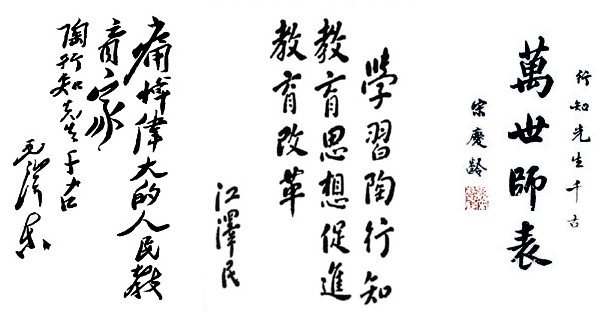 痛悼偉大的人民教
育家
陶行知先生千古
毛澤東
學習陶行知
教育思想促進
教育改革
江澤民
行知先生千古
萬世師表
宋慶齡